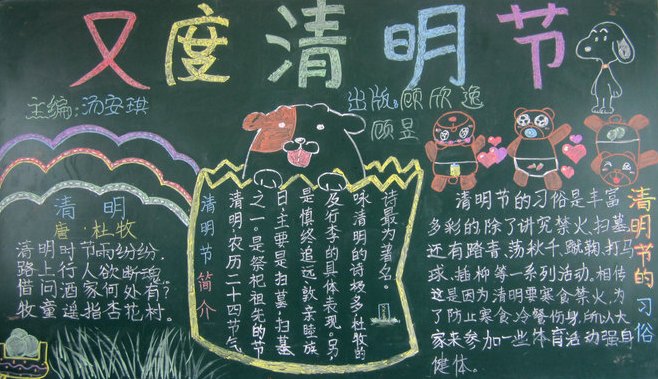 又度清明节
主编:汤安琪
出版:顾欣逸
顾昱
清明
唐·杜牧
清明时节雨纷纷.
路上行人欲断魂.
借问酒家何处有?
牧童遥指杏花村.
清明节简介
清明,农历二十四节气
之一。是祭祀祖先的节
日主要是扫墓,扫墓
是慎终追远、敦亲睦族
及行孝的具体表现。另,
咏清明的诗极多,杜牧的
诗最为著名。
清明节的习俗
清明节的习俗是丰富
多彩的,除了讲究禁火、扫墓,
还有踏青、荡秋千、蹴鞠、打马
球、插柳等一系列活动。相传
这是因为清明要寒食禁火,为
了防止寒食冷餐伤身,所以大
家来参加一些体育活动强自
健体。